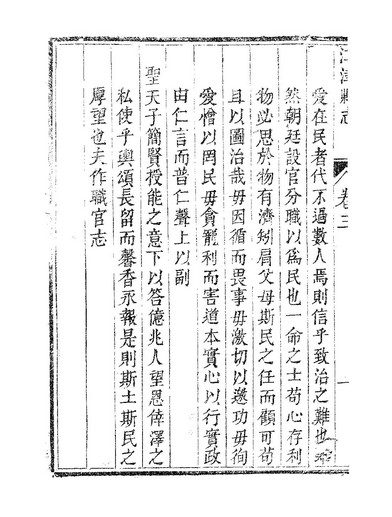 江津縣志 卷三 一
愛在民者代不過數人焉則信乎致治之難也
然朝廷設官分職以為民也一命之士苟心存利
物必思於物有濟矧肩父母斯民之任而顧可苟
且以圖治哉毋因循而畏事毋激切以邀功毋徇
愛憎以罔民毋貪寵利而害道本實心以行實政
由仁言而普仁聲上以副
聖天子簡賢授能之意下以答億兆人望恩倖澤之
私使乎輿頌長留而馨香永報是則斯土斯民之
厚望也夫作職官志